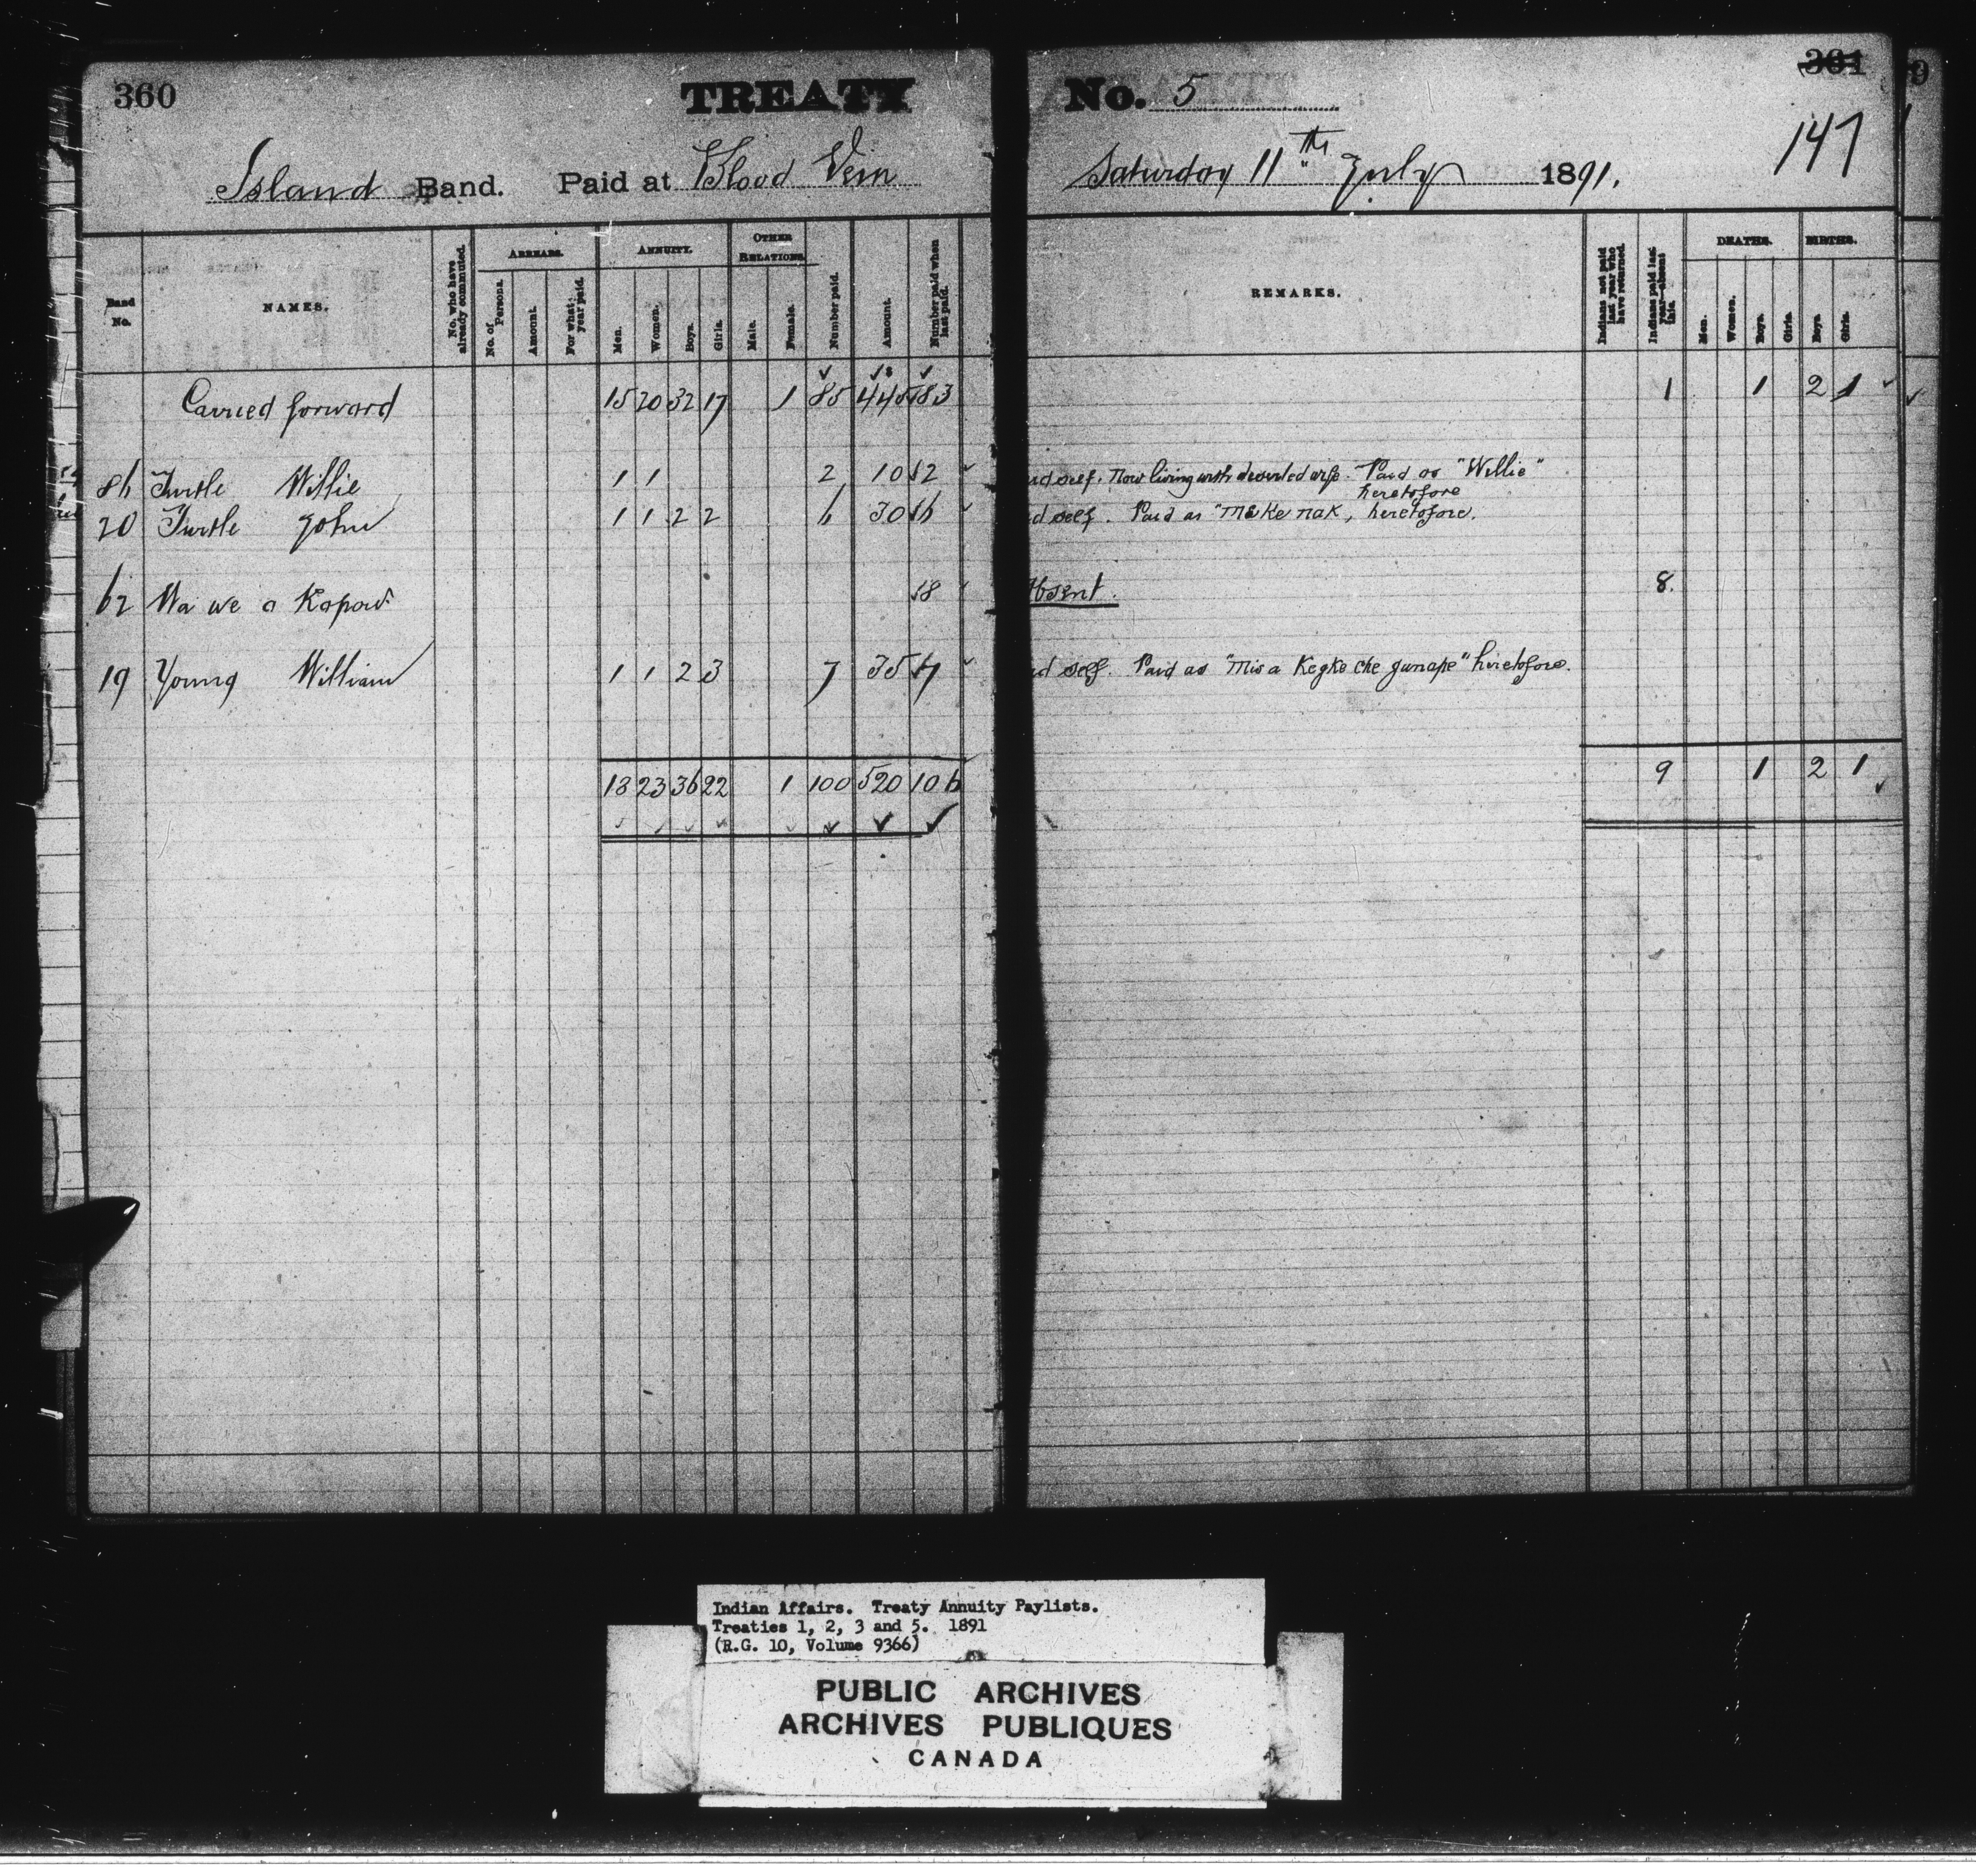 360 TREATY No. 5 361
147
Island Band. Paid at Blood Vein Saturday 11th July 1891.
Band No.
NAMES.
No. who have already commuted.
ARREARS.
No. of Persons.
Amount.
For what year paid.
ANNUITY.
Men.
Women.
Boys.
Girls.
OTHER RELATIONS
Male.
Female.
Number paid.
Amount.
Number paid when last paid.
REMARKS.
Indians not paid last year who have returned.
Indians paid last year—absent this.
DEATHS.
Men.
Women.
Boys.
Girls.
BIRTHS.
Boys.
Girls.
Carried forward 15 20 32 17 1 85 445 83 1 1 2 1
86 Turtle Willie 1 1 2 10 2 self. Now living with deserted wife. Paid as "Willie" heretofore
20 Turtle John 1 1 2 2 6 30 6 self. Paid as "Mekenak, heretofore.
62 Wa we a Kapow 8 Absent. 8.
19 Young William 1 1 2 3 7 35 7 self. Paid as "Mis a Kegke che gunape" heretofore.
18 23 36 22 1 100 520 106 9 1 2 1
Indian Affairs. Treaty Annuity Paylists.
Treaties 1, 2, 3 and 5. 1891
(R.G. 10, Volume 9366)
PUBLIC ARCHIVES
ARCHIVES PUBLIQUES
CANADA